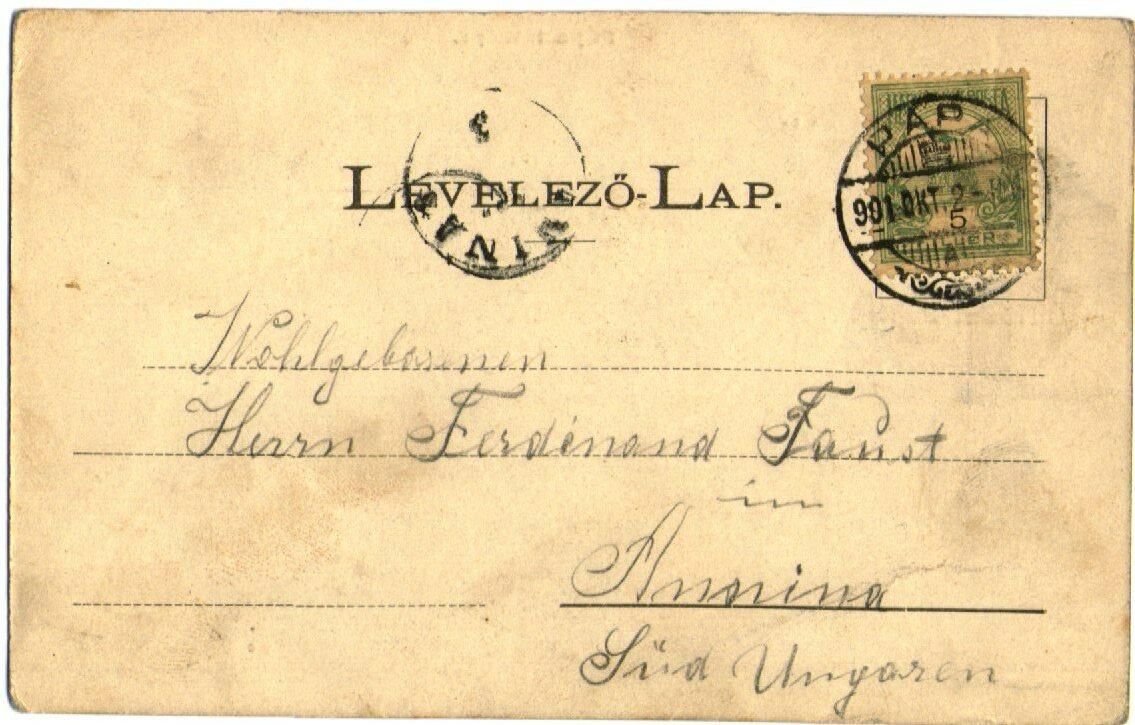 LEVELEZŐ-LAP.
PÁP
901 OKT. 2
5
A
3
Wohlgeborenen
Herrn Ferdinand Faust
in
Anina
Süd Ungaren